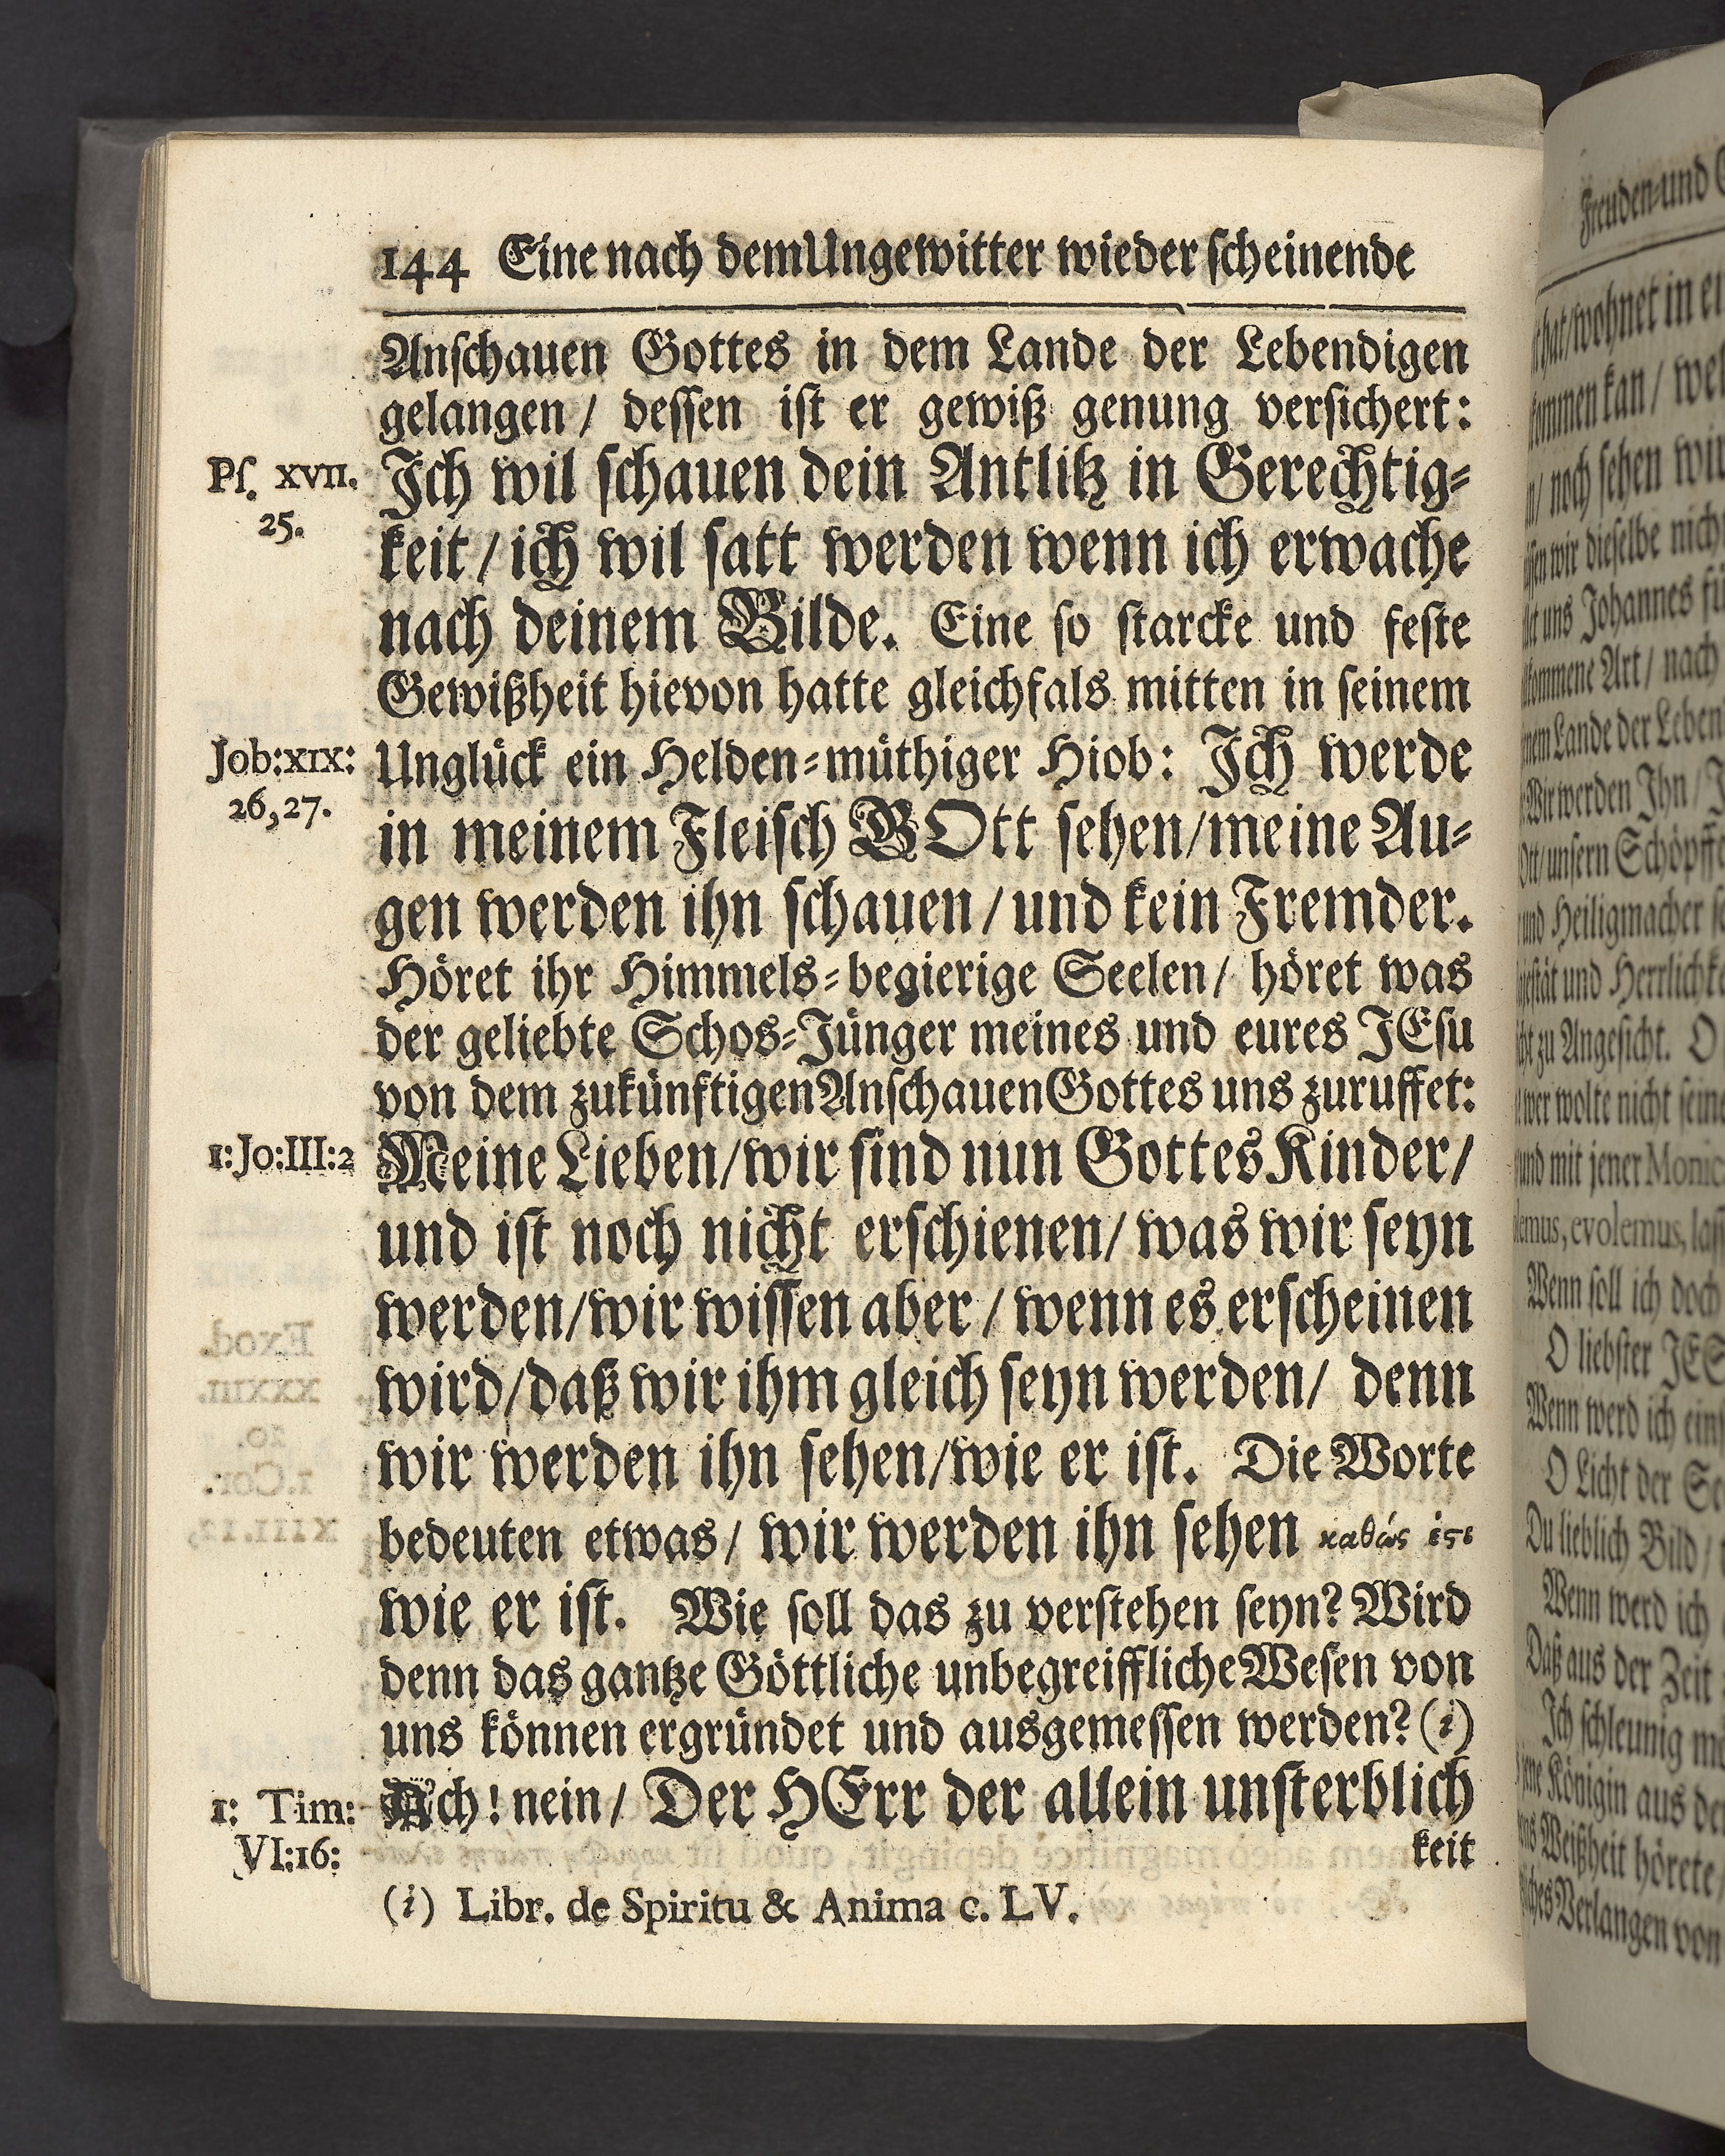 144 Eine nach dem Ungewitter wieder scheinende
Anschauen Gottes in dem Lande der Lebendigen
gelangen / dessen ist er gewiß genung versichert:
Ps. XVII. 25.
Ich wil schauen dein Antlitz in Gerechtig-
keit / ich wil satt werden wenn ich erwache
nach deinem Bilde. Eine so starcke und feste
Gewißheit hievon hatte gleichfals mitten in seinem
Job: XIX: 26, 27.
Unglück ein Helden-müthiger Hiob: Ich werde
in meinem Fleisch GOtt sehen / meine Au-
gen werden ihn schauen / und kein Fremder.
Höret ihr Himmels-begierige Seelen / höret was
der geliebte Schos-Jünger meines und eures JEsu
von dem zukünftigen Anschauen Gottes uns zuruffet:
1: Jo: III: 2
Meine Lieben / wir sind nun Gottes Kinder /
und ist noch nicht erschienen / was wir seyn
werden / wir wissen aber / wenn es erscheinen
wird / daß wir ihm gleich seyn werden / denn
wir werden ihn sehen / wie er ist. Die Worte
bedeuten etwas / wir werden ihn sehen καθώς ἐςι
wie er ist. Wie soll das zu verstehen seyn? Wird
denn das gantze Göttliche unbegreiffliche Wesen von
uns können ergründet und ausgemessen werden? (i)
1: Tim: VI: 16:
Ach! nein / Der HErr der allein unsterblich
keit
(i) Libr. de Spiritu & Anima c. LV.